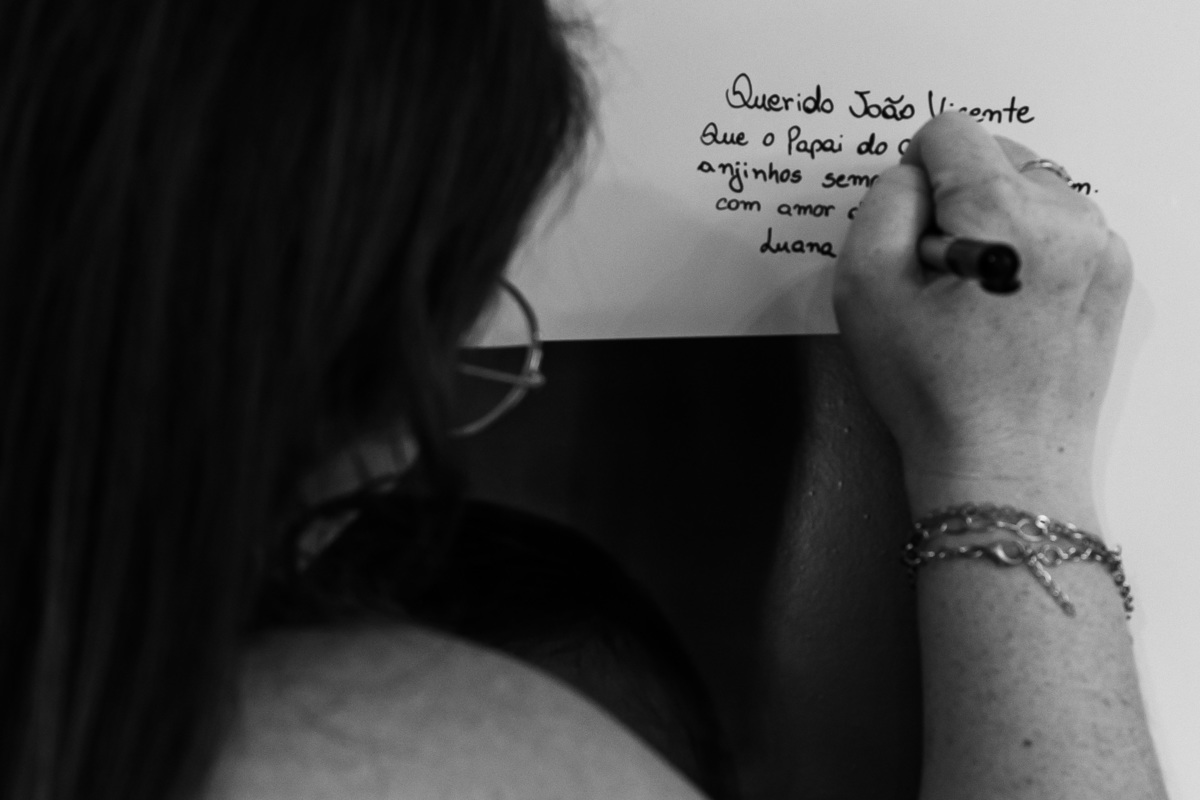 Querido João Vicente
Que o Papai do
anjinhos
com amor
Luana